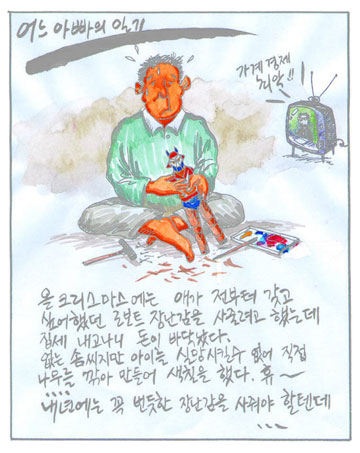 어느 아빠의 일기
가계경제
최악!!
올 크리스마스에는 애가 전부터 갖고
싶어했던 로보트 장난감을 사줄려고 했는데
집세 내고나니 돈이 바닥났다.
없는 솜씨지만 아이를 실망시킬수 없어 직접
나무를 깎아 만들어 색칠을 했다. 휴~
....
내년에는 꼭 번듯한 장난감을 사줘야 할텐데
....